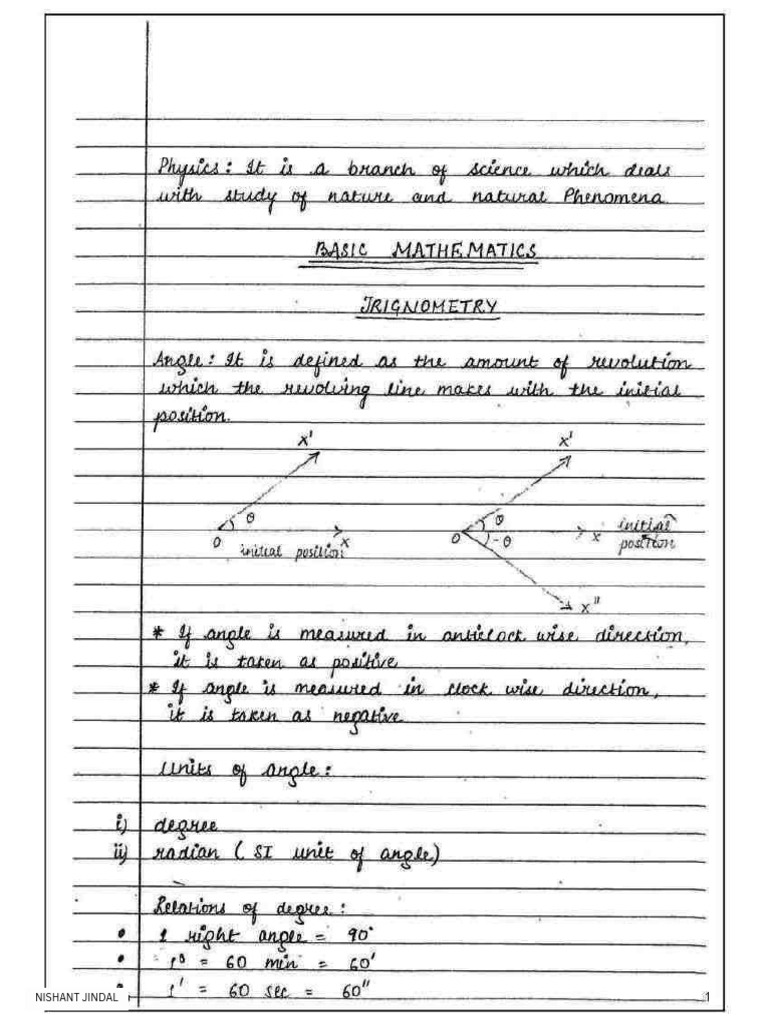 Physics: It is a branch of science which deals
with study of nature and natural Phenomena.
BASIC MATHEMATICS
TRIGNOMETRY
Angle: It is defined as the amount of revolution
which the revolving line makes with the initial
position.
X' X'
θ θ
O initial position X O -θ X initial position
X"
* If angle is measured in anticlock wise direction,
it is taken as positive
* If angle is measured in clock wise direction,
it is taken as negative
Units of angle:
i) degree
ii) radian (SI unit of angle)
Relations of degree:
• 1 right angle = 90°
• 1° = 60 min = 60'
• 1' = 60 sec = 60"
NISHANT JINDAL 1